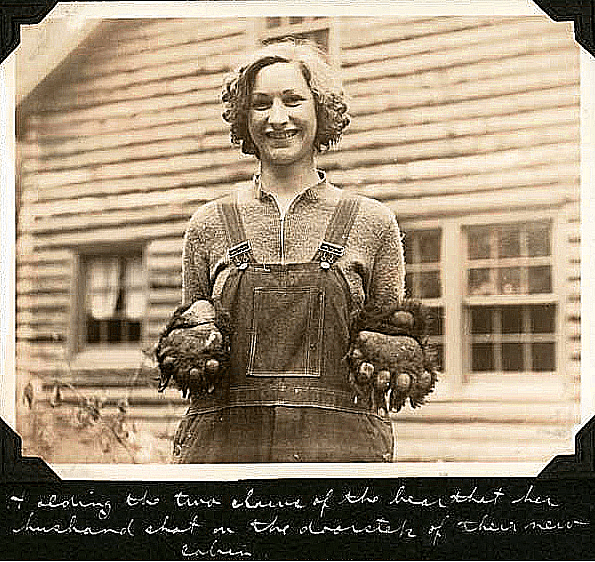 Holding the two claws of the bear that her
husband shot on the doorstep of their new
cabin.